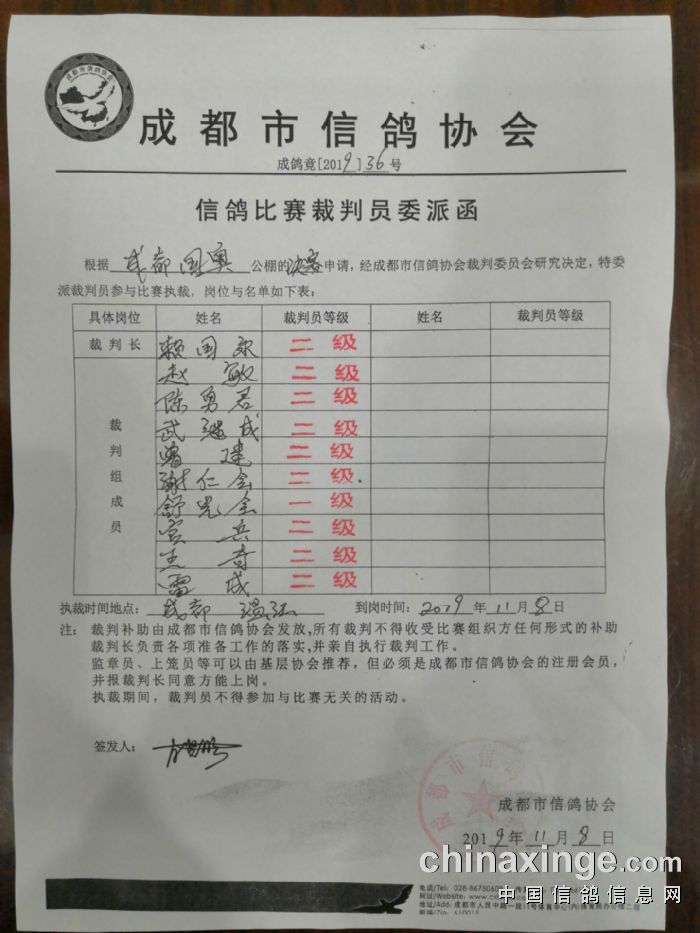 成都市信鸽协会
成都市信鸽协会
成鸽竟[2019]36号
信鸽比赛裁判员委派函
根据 成都国奥 公棚的决赛申请，经成都市信鸽协会裁判委员会研究决定，特委
派裁判员参与比赛执裁，岗位与名单如下表：
具体岗位 姓名 裁判员等级 姓名 裁判员等级
裁判长 赖国 二级
赵敏 二级
陈勇君 二级
武继成 二级
曾建 二级
谢仁全 二级
舒光全 一级
宾兵 二级
王奇 二级
雷成 二级
裁判组成员
执裁时间地点：成都 温江 到岗时间：2019年11月8日
注： 裁判补助由成都市信鸽协会发放,所有裁判不得收受比赛组织方任何形式的补助
裁判长负责各项准备工作的落实,并亲自执行裁判工作。
监章员、上笼员等可以由基层协会推荐，但必须是成都市信鸽协会的注册会员，
并报裁判长同意方能上岗。
执裁期间，裁判员不得参加与比赛无关的活动。
签发人：
成都市信鸽
成都市信鸽协会
2019年11月8日
chinaxinge.com
中国信鸽信息网
电话/Tel: 028-8675060
网址/Website: www.c
地址/Add: 成都市人民中路一段11号体育中心(内)体育局办公楼二楼
邮编/Zip: 610015